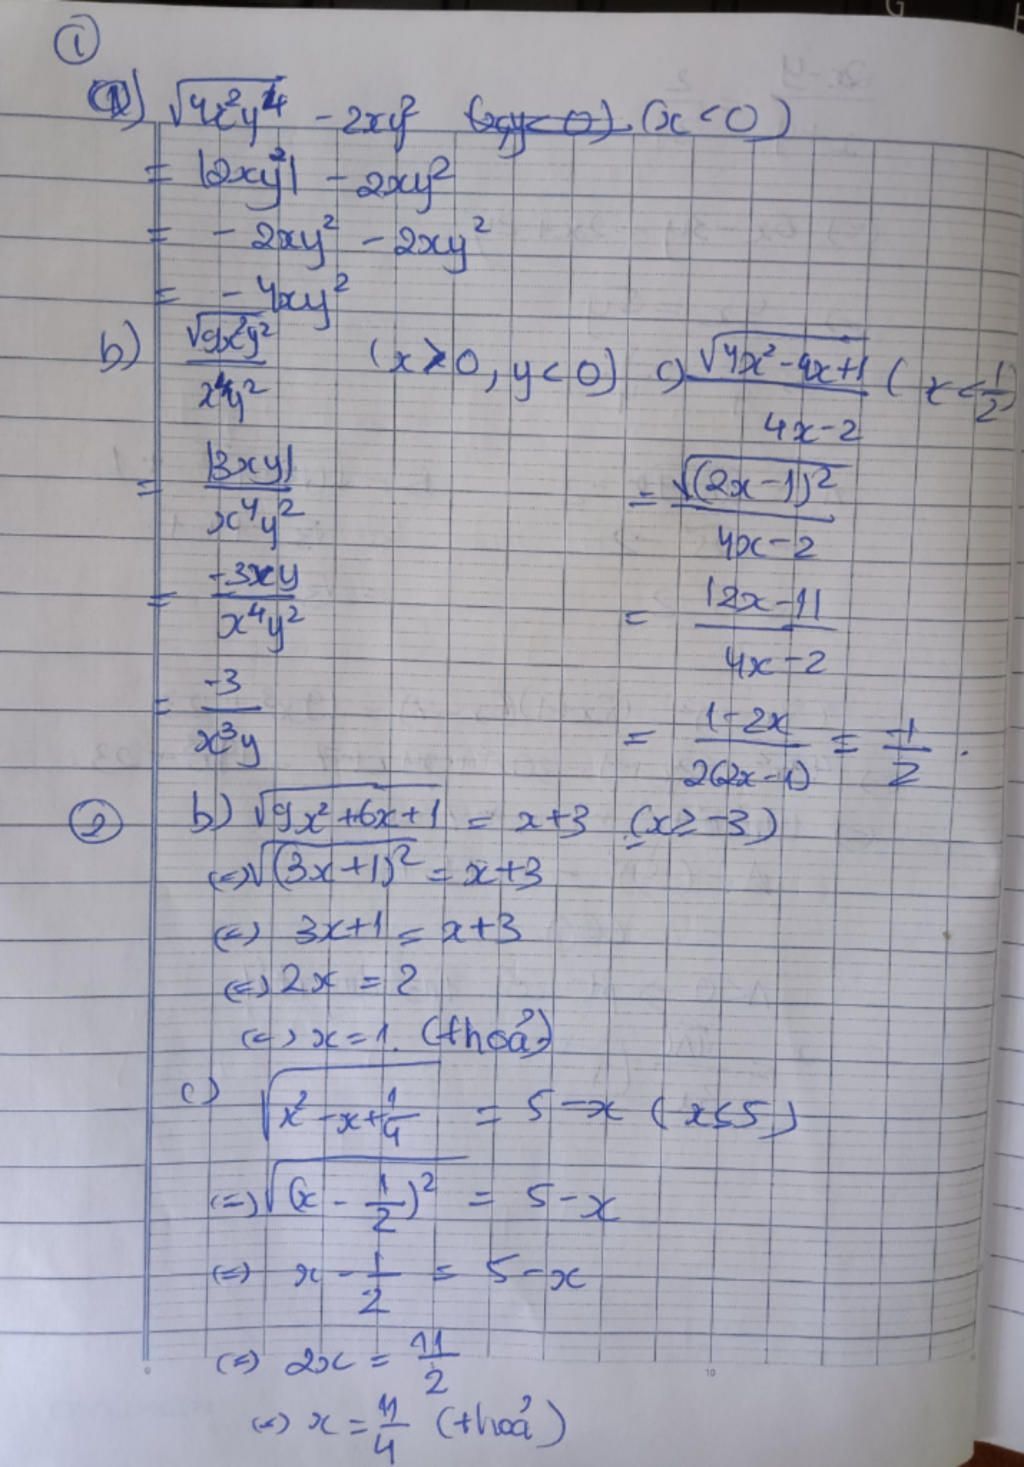 ①
a) √(4x²y⁴) - 2xy² (xy<0). (x<0)
= |2xy²| - 2xy²
= - 2xy² - 2xy²
= - 4xy²
b) √(9x²y²) / x⁴y² (x>0, y<0)
= |3xy| / x⁴y²
= -3xy / x⁴y²
= -3 / x³y
c) √(4x²-4x+1) / 4x-2 (x<1/2)
= √((2x-1)²) / 4x-2
= |2x-1| / 4x-2
= 1-2x / 2(2x-1) = -1/2.
② b) √(9x²+6x+1) = x+3 (x≥-3)
(=) √((3x+1)²) = x+3
(=) 3x+1 = x+3
(=) 2x = 2
(=) x=1. (thoả)
c) √(x²-x+1/4) = 5-x (x≤5)
(=) √((x-1/2)²) = 5-x
(=) x-1/2 = 5-x
(=) 2x = 11/2
(=) x = 11/4 (thoả)
10